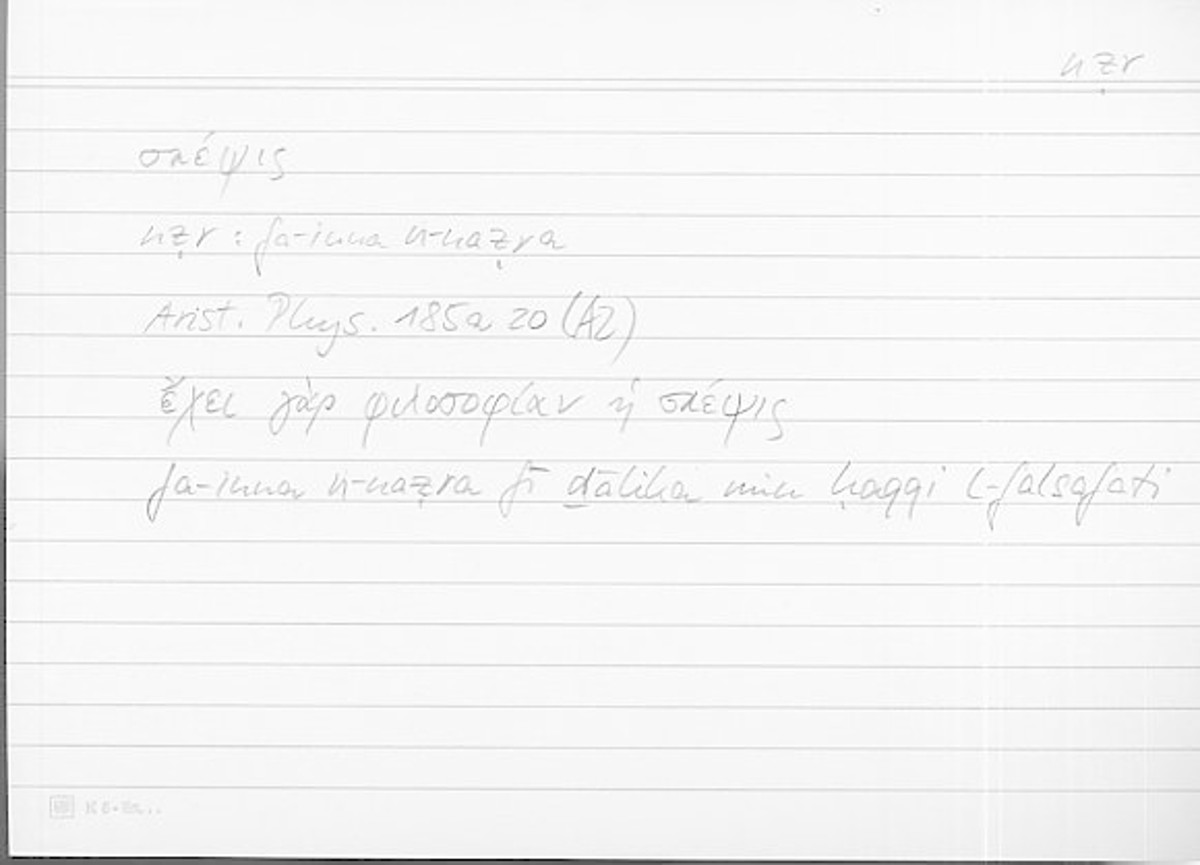 nẓr
σκέψις
nẓr : fa-inna n-naẓra
Arist. Phys. 185a 20 (A2)
ἔχει γὰρ φιλοσοφίαν ἡ σκέψις
fa-inna n-naẓra fī ḏālika min ḥaqqi l-falsafati